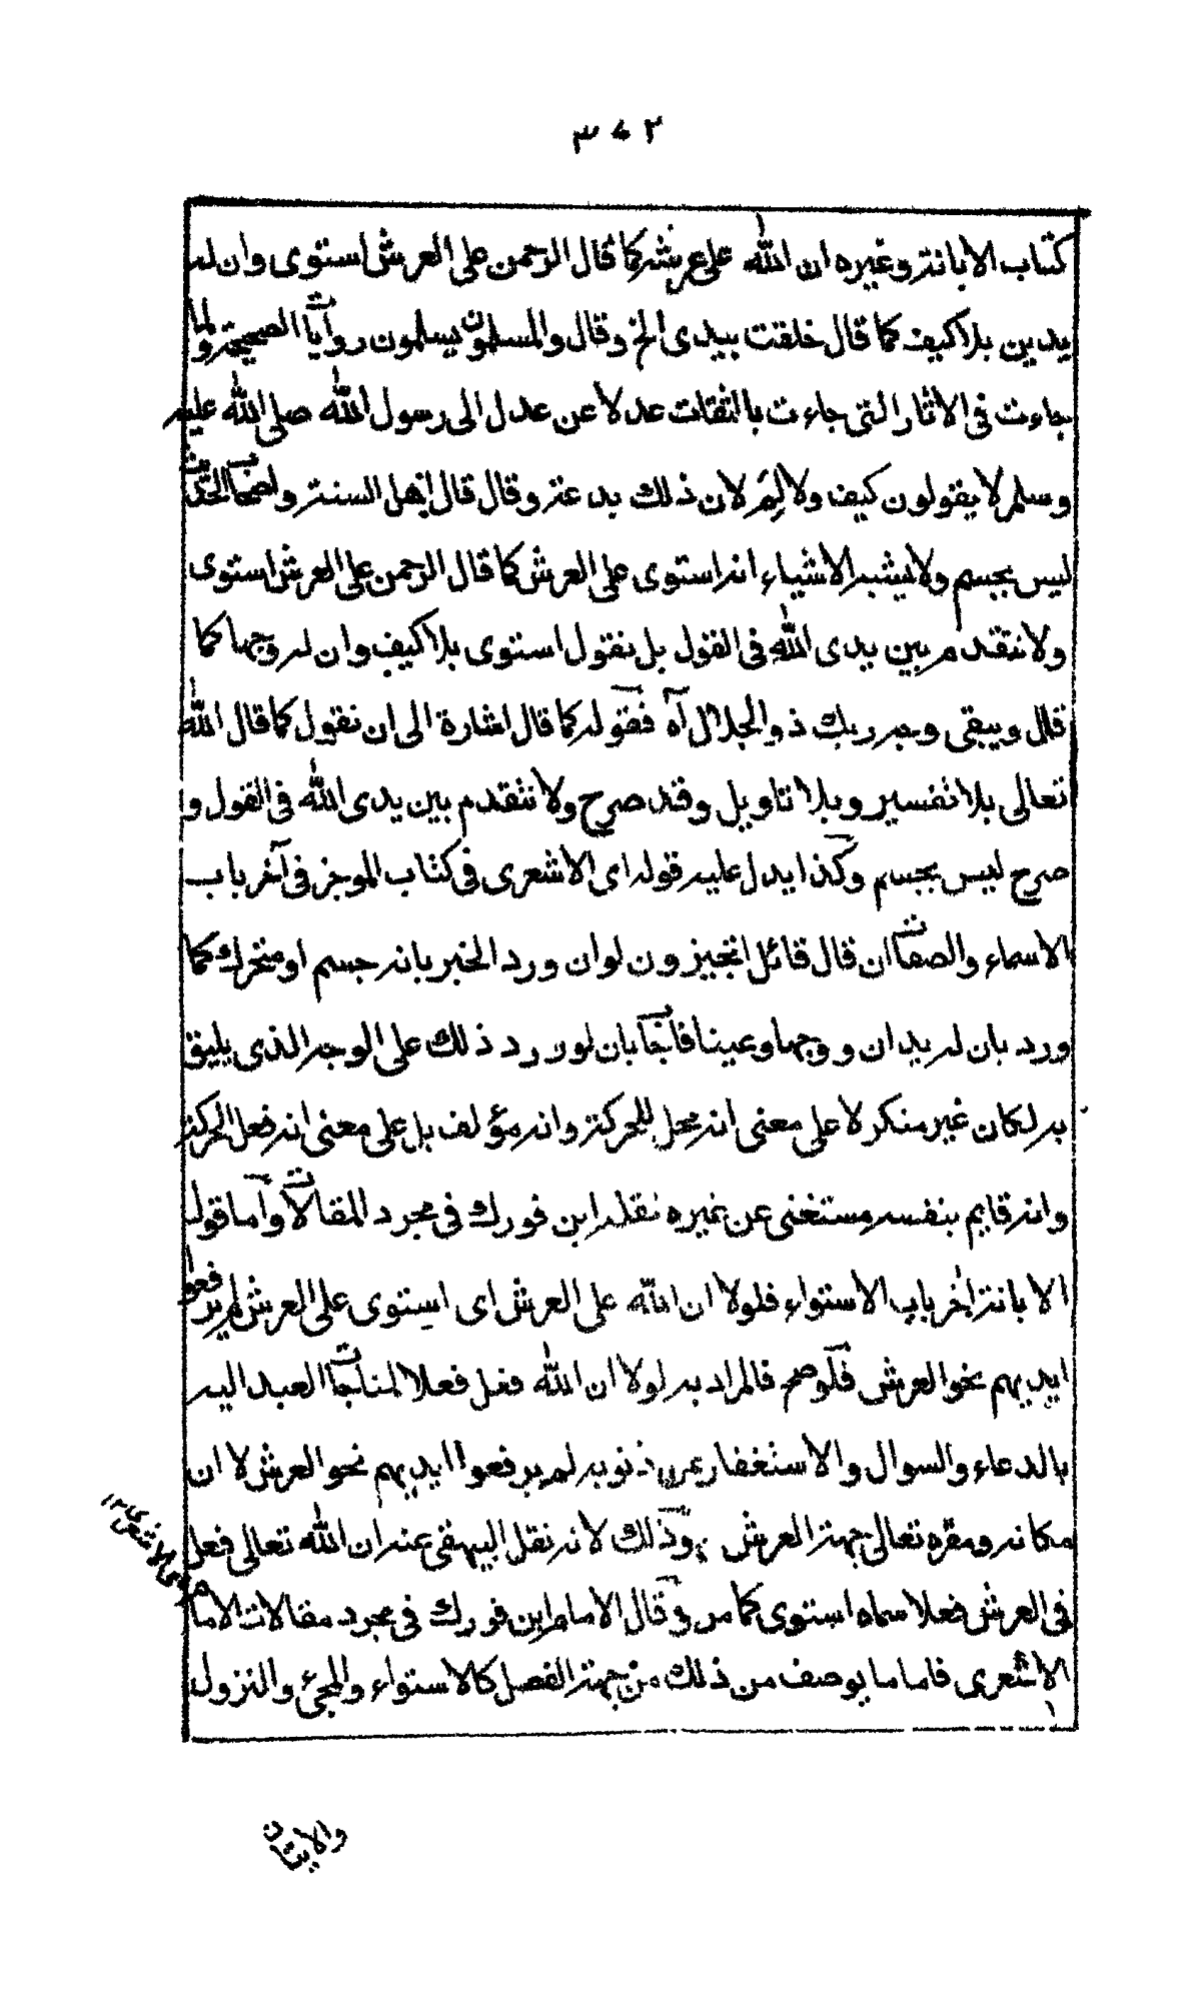 كتاب الابانة وغيره ان الله على عرشه كما قال الرحمن على العرش استوى وان له
يدين بلا كيف كما قال خلقت بيدى الخ وقال والمسلمون يسلمون روايات الصحيحة ولما
جاءت فى الاثار التى جاءت بالثقات عدلا عن عدل الى رسول الله صلى الله عليه
وسلم لا يقولون كيف ولا لِمَ لان ذلك بدعة وقال قال اهل السنة واصحاب الحديث
ليس بجسم ولا يشبه الاشياء انه استوى على العرش كما قال الرحمن على العرش استوى
ولا نتقدم بين يدى الله فى القول بل نقول استوى بلا كيف وان له وجها كما
قال ويبقى وجه ربك ذو الجلال آه فقوله كما قال اشارة الى ان نقول كما قال الله
تعالى بلا تفسير وبلا تاويل وقد صرح ولا نتقدم بين يدى الله فى القول و
صرح ليس بجسم وكذا يدل عليه قوله اى الاشعرى فى كتاب الموجز فى آخر باب
الاسماء والصفات ان قال قائل اتجيزون لو ان ورد الخبر بانه جسم او متحرك كما
ورد بان له يدان ووجها وعينا فاجاب بان لو ورد ذلك على الوجه الذى يليق
به لكان غير منكر لا على معنى انه محل للحركة وانه مؤلف بل على معنى انه فعل الحركة
وانه قايم بنفسه مستغنى عن غيره نقله ابن فورك فى مجرد المقالات واما قول
الابانة اخر باب الاستواء فلولا ان الله على العرش اى استوى على العرش لم يرفعوا
ايديهم نحو العرش فلو صح فالمراد به لولا ان الله فعل فعلا لمناجات العبد اليه
بالدعاء والسوال والاستغفار عن ذنوبه لم يرفعوا ايديهم نحو العرش لا ان
مكانه ومقره تعالى جهة العرش وذلك لانه نقل البيهقى عنه ان الله تعالى فعل
فى العرش فعلا سماه استوى كما مر وقال الامام ابن فورك فى مجرد مقالات الامام
الاشعرى فاما ما يوصف من ذلك من جهة الفصل كالاستواء والمجئ والنزول
والاتيان